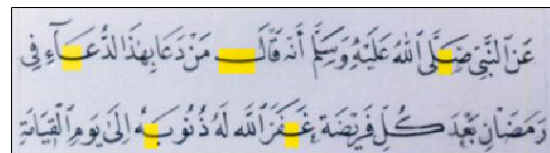 عَنِ النَّبِيِّ صَلَّى اللهُ عَلَيْهِ وَسَلَّمَ أَنَّهُ قَالَ مَنْ دَعَا بِهٰذَا الدُّعَاۤءِ فِى
رَمَضَانَ بَعْدَ كُلِّ فَرِيْضَةٍ غَفَرَ اللّٰهُ لَهُ ذُنُوبَهُ اِلىٰ يَوْمِ الْقِيَامَةِ